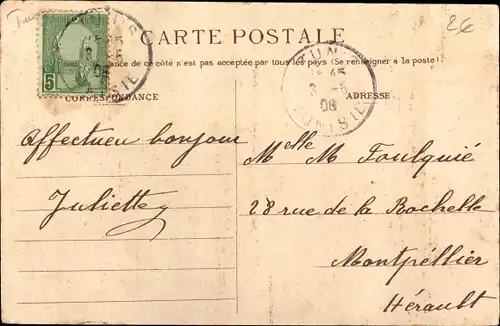 CARTE POSTALE
dance de ce côté n'est pas acceptée par tous les pays (Se renseigner à la poste)
CORRESPONDANCE
ADRESSE
5
TUNIS
3 -5
08
TUNISIE
26
Affectueu bonjour
Juliette
Melle M Foulquié
28 rue de la Rochelle
Montpéllier
Hérault